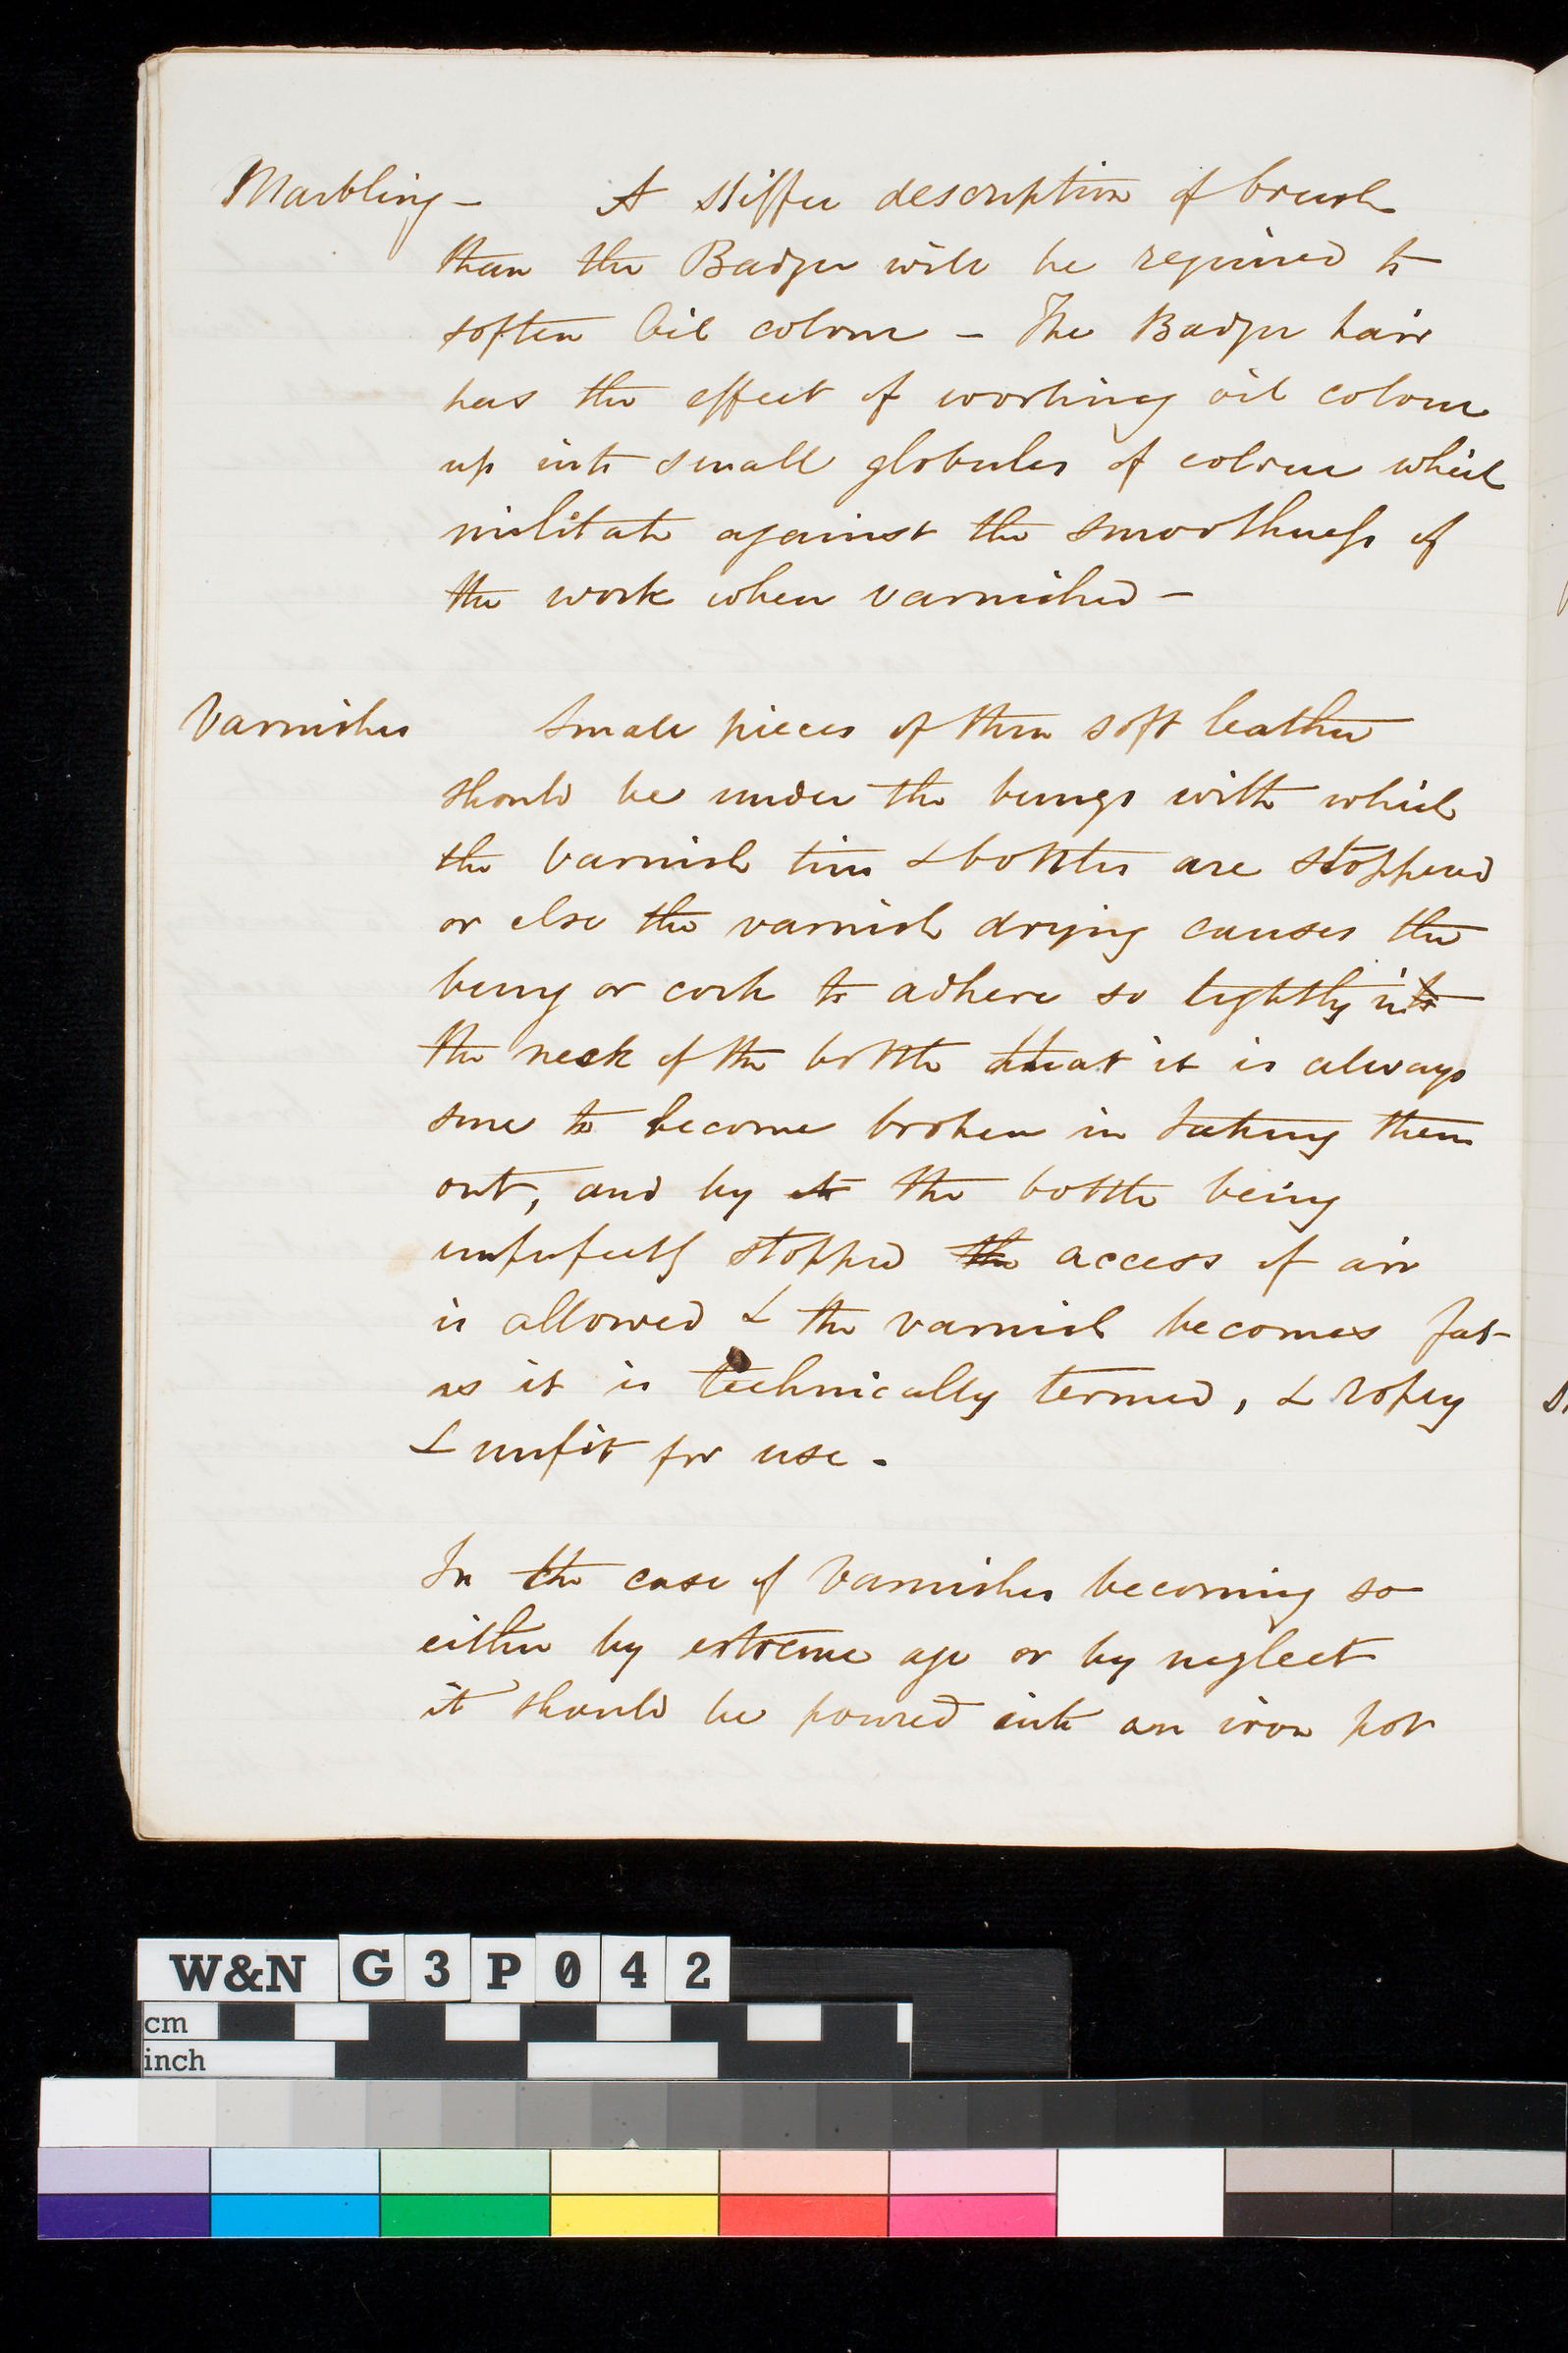 Marbling – A stiffer description of brush
than the Badger will be required to
soften Oil colour – The Badger hair
has the effect of working oil colour
up into small globules of colour which
militate against the smoothness of
the work when varnished –
Varnishes Small pieces of thin soft leather
should be under the bungs with which
the Varnish tins & bottles are stoppered
or else the varnish drying causes the
bung or cork to adhere so tightly into
the neck of the bottle that it is always
sure to become broken in taking them
out, and by the bottle being
imperfectly stopped the access of air
is allowed & the varnish becomes fat
as it is technically termed, & ropey
& unfit for use.
In the case of Varnishes becoming so
either by extreme age or by neglect
it should be poured into an iron pot
W&N G3P042
cm
inch